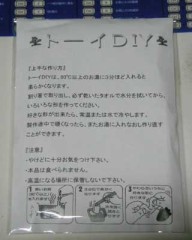 トーイDIY
【上手な作り方】
トーイDIYは、80℃以上のお湯に3分ほど入れると
柔らかくなります。
割り箸で取り出し、必ず乾いたタオルで水分を拭いてから、
いろいろな形を作ってください。
好きな形が出来たら、常温または水で冷やします。
制作途中で硬くなったら、またお湯に入れなおし作り直す
ことができます。
【注意】
・やけどに十分お気をつけ下さい。
・本品は食べられません。
・高温になる場所に保管しないで下さい。